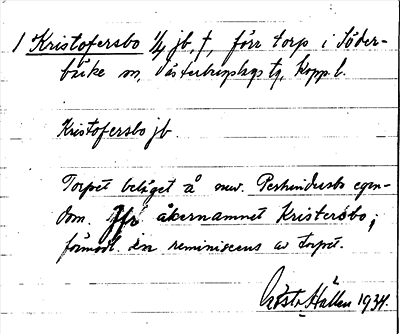 1 Kristofersbo 1/4 jb, †, förr torp i Söder-
bärke sn, Västerbergslags tg, Kopp. l.
Kristofersbo jb
Torpet beläget å nuv. egen-
dom. Jfr åkernamnet Kristersbo,
förmodl. en reminiscens av torpet.
Gösta Hallen 1934.